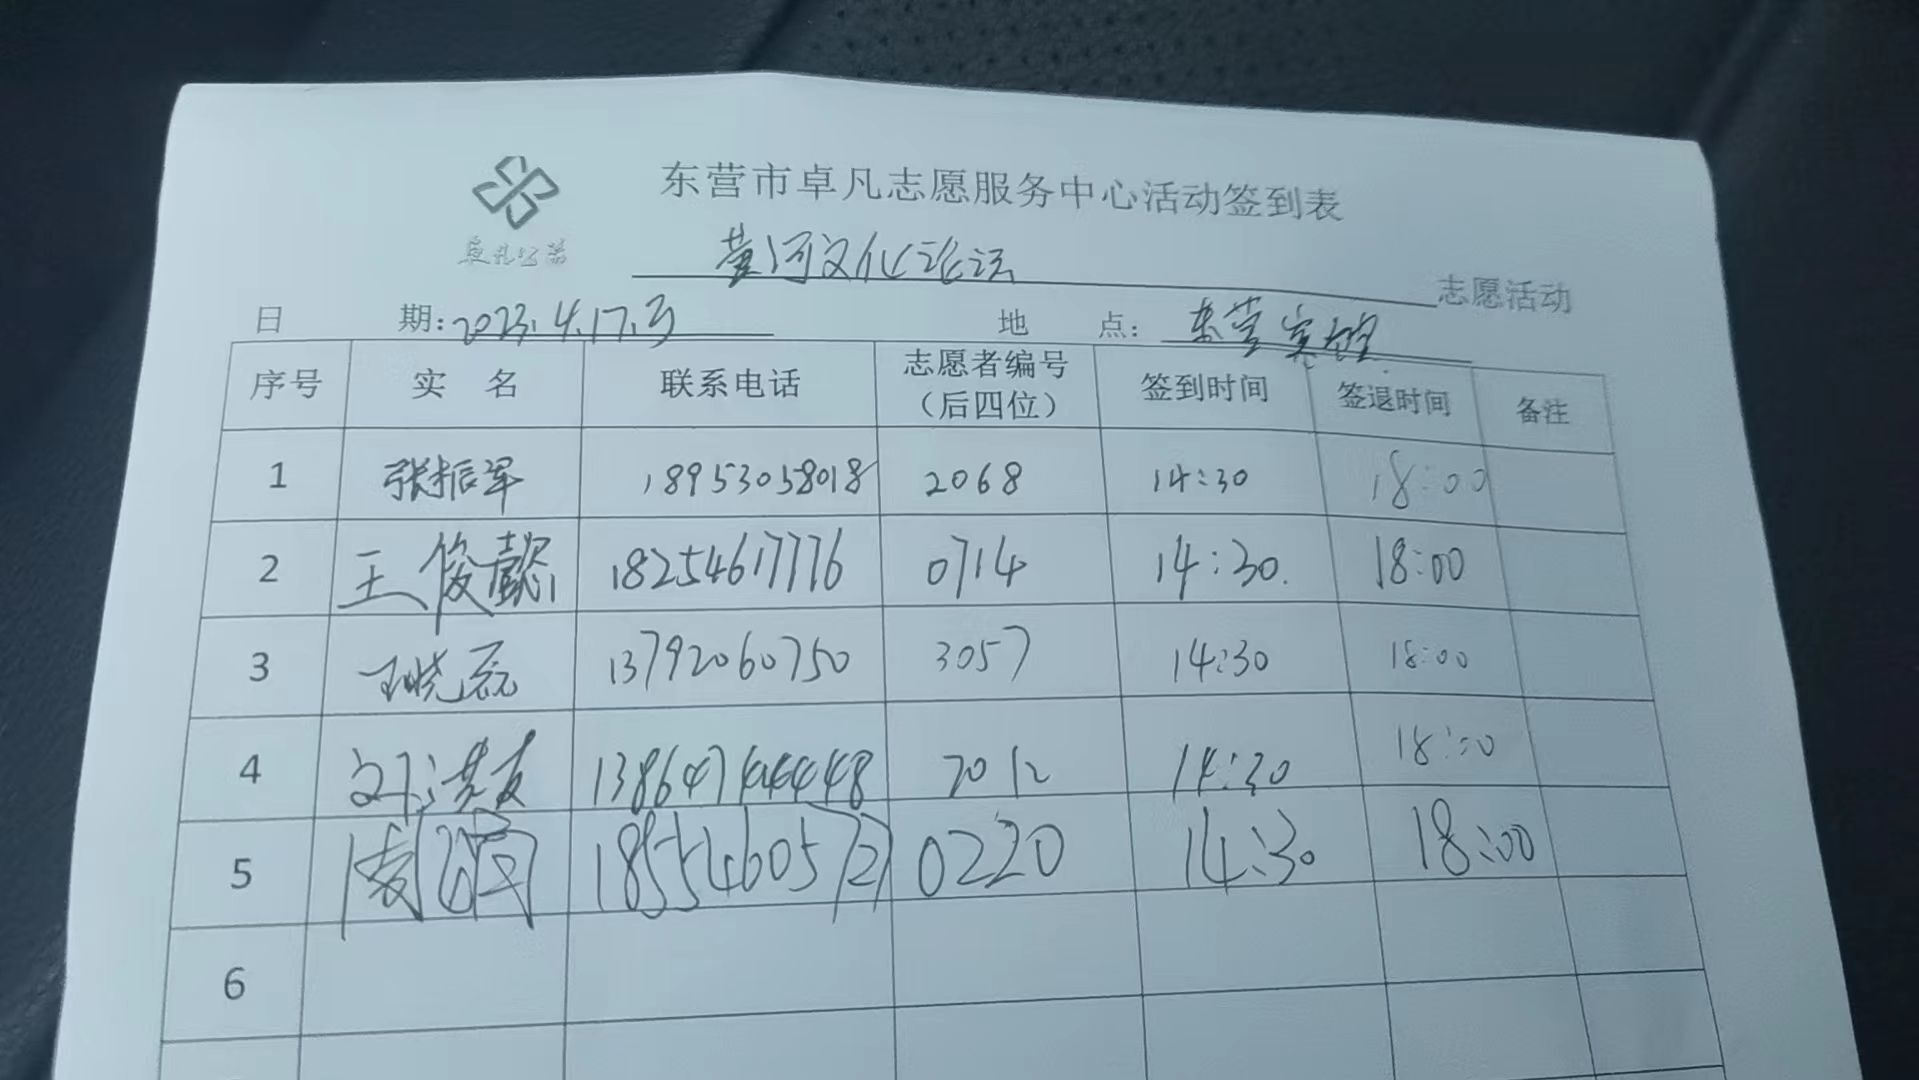 东营市卓凡志愿服务中心活动签到表
卓凡公益
黄河文化论坛 志愿活动
日 期：2023.4.17.号 地 点：东营宾馆
序号 实 名 联系电话 志愿者编号（后四位） 签到时间 签退时间 备注
1 张振军 18953058018 2068 14:30 18:00
2 王俊懿 18254617776 0714 14:30. 18:00
3 王晓磊 13792060750 3057 14:30 18:00
4 刘洪友 13864714448 2012 14:30 18:00
5 0220 14:30 18:00
6